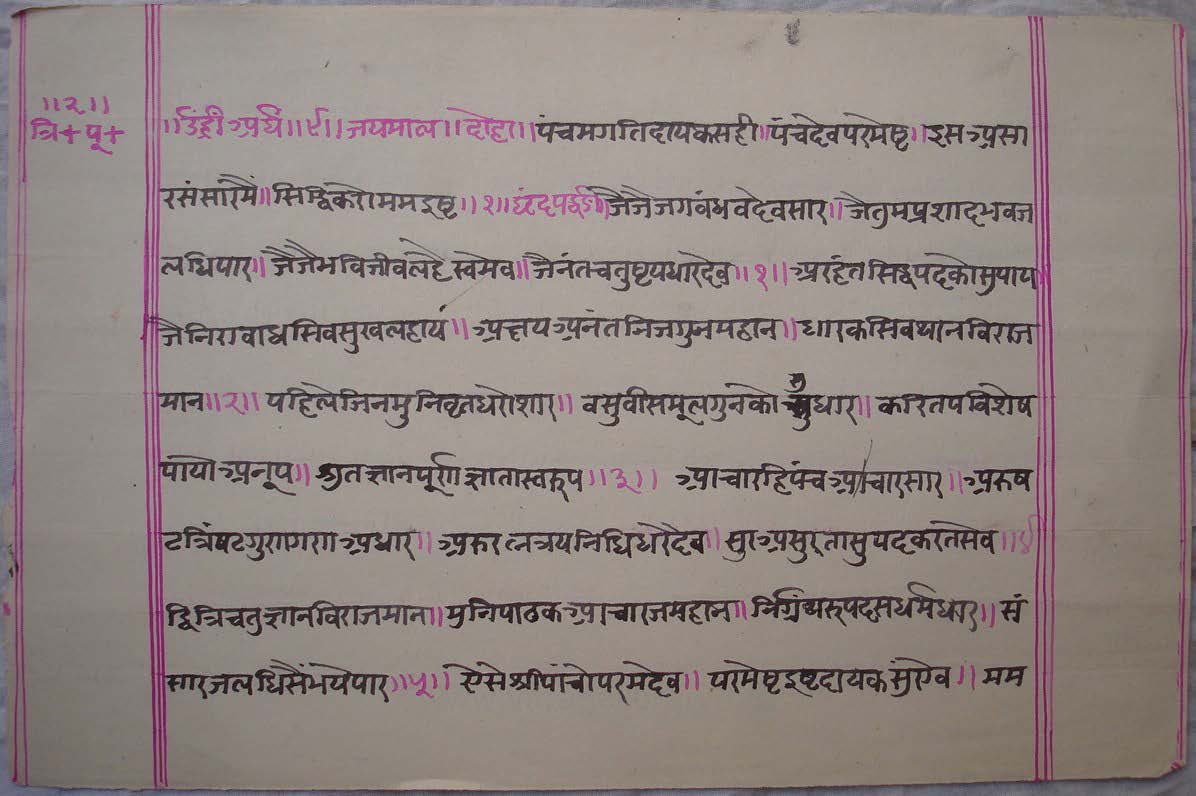 ॥२॥
त्रि+ पू+
॥उंह्रीं अर्घं॥९॥ जयमाल ॥दोहा॥ पंचमगतिदायकसही॥पंचदेवपरमेष्ट॥इसअसा
रसंसारमैं॥सिद्धिकरोममइष्ट॥१॥छंदपद्धडी॥जैजैजगबंधवदेवसार॥जैतुमप्रशादभवज
लधिपार॥जैजैभविजीवलहैस्वमेव॥जैनंतचतुष्टयधारदेव॥१॥अरहंतसिद्धपदकोसुपाय
जैनिरावाधसिवसुखलहाय॥अक्षयअनंतनिजगुनमहान॥धारकसिवथानविराज
मान॥२॥ पहिलेजिनमुनिवृतधरोशार॥ वसुवीसमूलगुनकोसुधार॥करितपविशेष
पायोअनूप॥श्रुतज्ञानपूर्णज्ञातास्वरूप॥३॥ आचारहिपंचआचारसार॥अरुष
टत्रिंषटगुरागराअधार॥अरुरत्नत्रयनिधिधरैदेव॥सुरअसुरतासुपदकरतसेव॥४
द्वित्रिचतुज्ञानविराजमान॥मुनिपाठकआचारजमहान॥निर्ग्रंथरूपदसधर्मधार॥सं
सारजलधिसैंभयेपार॥५॥ऐसेश्रीपांचोपरमदेव॥परमेष्टइष्टदायकसुएव॥मम